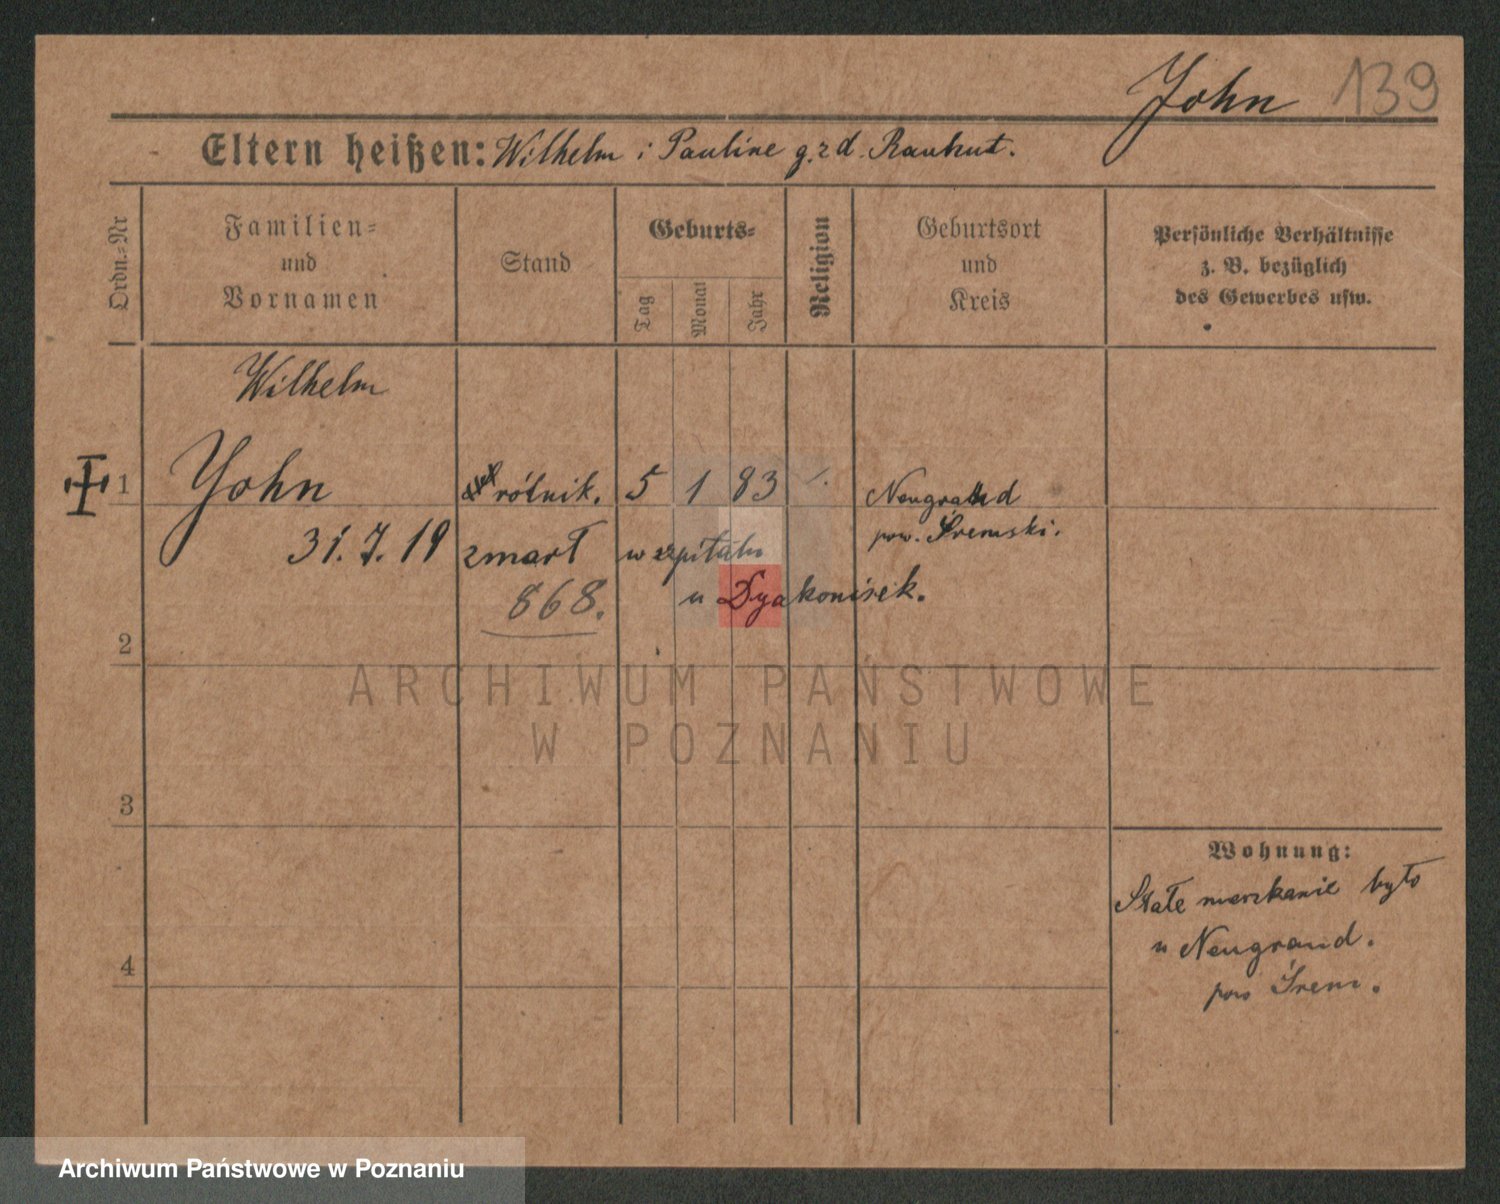 John 139
Eltern heißen: Wilhelm i Pauline g. rd. Rauhut.
Ordn.=Nr
Familien=
und
Vornamen
Stand
Geburts=
Tag
Monat
Jahr
Religion
Geburtsort
und
Kreis
Persönliche Verhältnisse
z. B. bezüglich
des Gewerbes usw.
Wilhelm
1 John rólnik. 5 1 83 Neugrand
pow. Śremski.
31. 7. 19 zmarł w szpitalu
u Dyakonisek.
868.
2
3
4
Wohnung:
Stałe mieszkanie było
u Neugrand.
pow Śrem.
ARCHIWUM PAŃSTWOWE
W POZNANIU
Archiwum Państwowe w Poznaniu